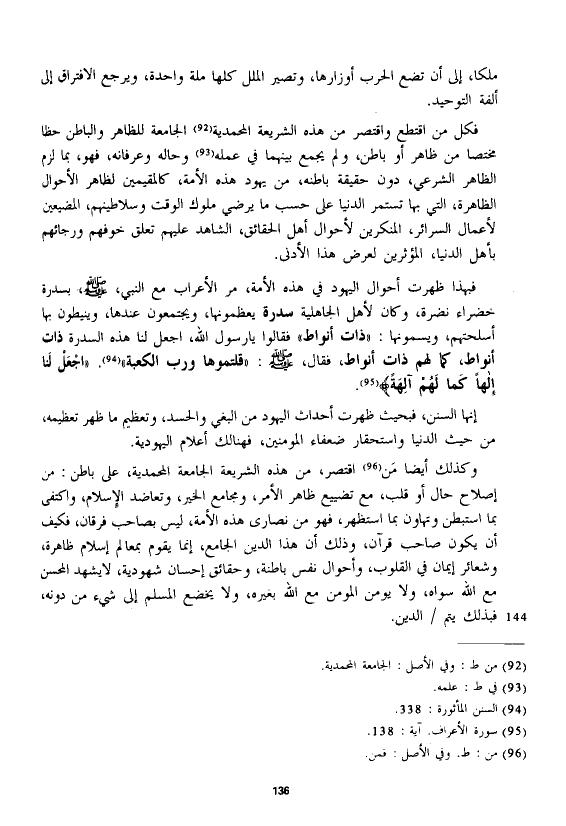 ملكا، إلى أن تضع الحرب أوزارها، وتصير الملل كلها ملة واحدة، ويرجع الافتراق إلى
ألفة التوحيد.
فكل من اقتطع واقتصر من هذه الشريعة المحمدية(92) الجامعة للظاهر والباطن حظا
مختصا من ظاهر أو باطن، ولم يجمع بينهما في عمله(93) وحاله وعرفانه، فهو، بما لزم
الظاهر الشرعي، دون حقيقة باطنه، من يهود هذه الأمة، كالمقيمين لظاهر الأحوال
الظاهرة، التي بها تستمر الدنيا على حسب ما يرضي ملوك الوقت وسلاطينهم، المضيعين
لأعمال السرائر، المنكرين لأحوال أهل الحقائق، الشاهد عليهم تعلق خوفهم ورجائهم
بأهل الدنيا، المؤثرين لعرض هذا الأدنى.
فبهذا ظهرت أحوال اليهود في هذه الأمة، مر الأعراب مع النبي، ﷺ، بسدرة
خضراء نضرة، وكان لأهل الجاهلية سدرة يعظمونها، ويجتمعون عندها، وينيطون بها
أسلحتهم، ويسمونها : «ذات أنواط» فقالوا يارسول الله، اجعل لنا هذه السدرة ذات
أنواط، كما لهم ذات أنواط، فقال، ﷺ : «قلتموها ورب الكعبة»(94). «اجْعَلْ لَنَا
إِلٰهاً كَما لَهُمْ آلِهَةً﴾(95).
إنها السنن، فبحيث ظهرت أحداث اليهود من البغي والحسد، وتعظيم ما ظهر تعظيمه،
من حيث الدنيا واستحقار ضعفاء المومنين، فهنالك أعلام اليهودية.
وكذلك أيضا مَن(96) اقتصر، من هذه الشريعة الجامعة المحمدية، على باطن : من
إصلاح حال أو قلب، مع تضييع ظاهر الأمر، ومجامع الخير، وتعاضد الإسلام، واكتفى
بما استبطن وتهاون بما استظهر، فهو من نصارى هذه الأمة، ليس بصاحب فرقان، فكيف
أن يكون صاحب قرآن، وذلك أن هذا الدين الجامع، إنما يقوم بمعالم إسلام ظاهرة،
وشعائر إيمان في القلوب، وأحوال نفس باطنة، وحقائق إحسان شهودية، لايشهد المحسن
مع الله سواه، ولا يومن المومن مع الله بغيره، ولا يخضع المسلم إلى شيء من دونه،
144 فبذلك يتم / الدين.
(92) من ط : وفي الأصل : الجامعة المحمدية.
(93) في ط : علمه.
(94) السنن المأثورة : 338.
(95) سورة الأعراف. آية : 138.
(96) من : ط. وفي الأصل : فمن.
136